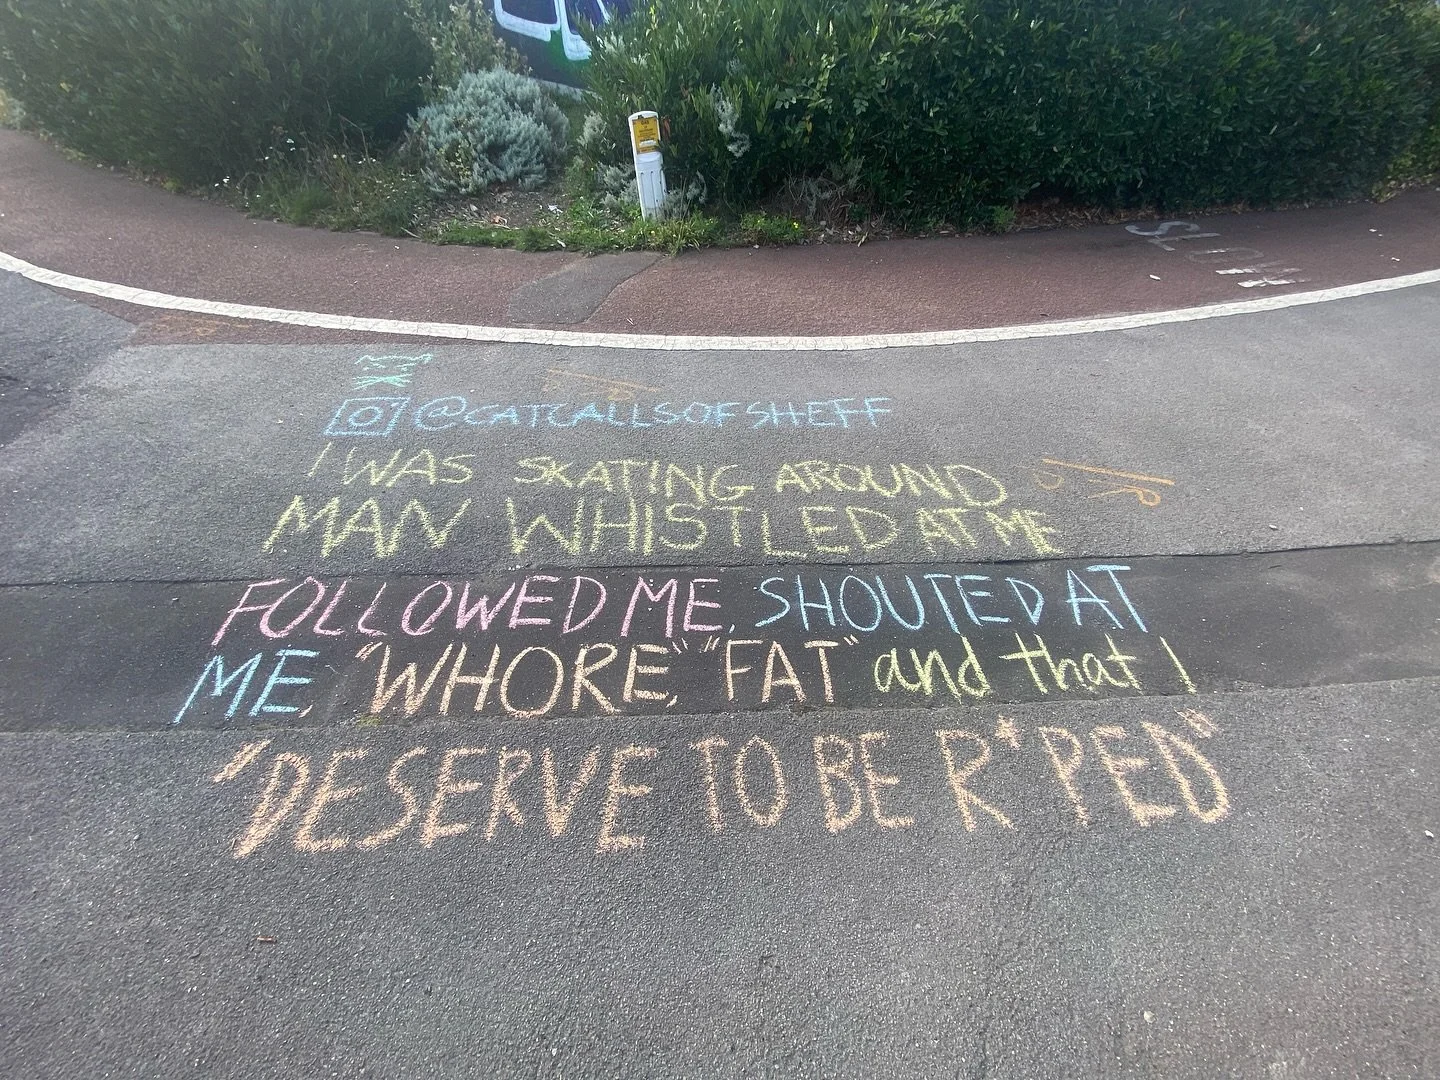 SLOW
@CATCALLSOFSHEFF
I WAS SKATING AROUND
MAN WHISTLED AT ME
FOLLOWED ME, SHOUTED AT
ME, "WHORE", "FAT" and that I
"DESERVE TO BE R*PED"